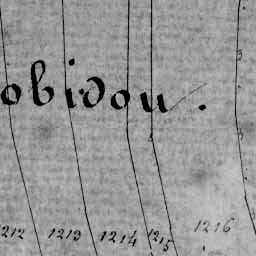 obidou.
1212 1213 1214 1215 1216